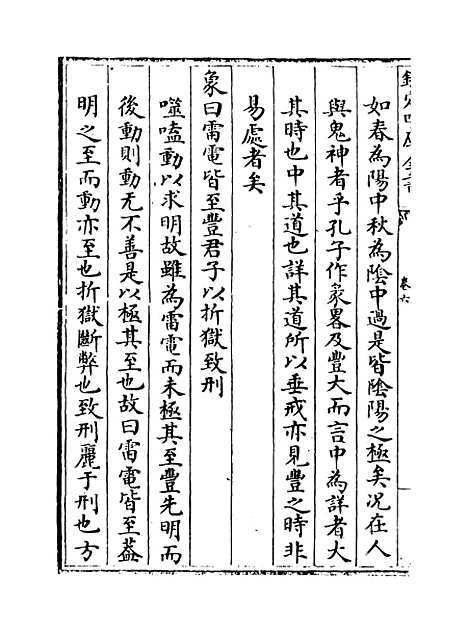 欽定四庫全書
卷六
如春為陽中秋為陰中過是皆陰陽之極矣况在人
與鬼神者乎孔子作彖畧及豐大而言中為詳者大
其時也中其道也詳其道所以垂戒亦見豐之時非
易處者矣
象曰雷電皆至豐君子以折獄致刑
噬嗑動以求明故雖為雷電而未極其至豐先明而
後動則動无不善是以極其至也故曰雷電皆至葢
明之至而動亦至也折獄斷弊也致刑麗于刑也方